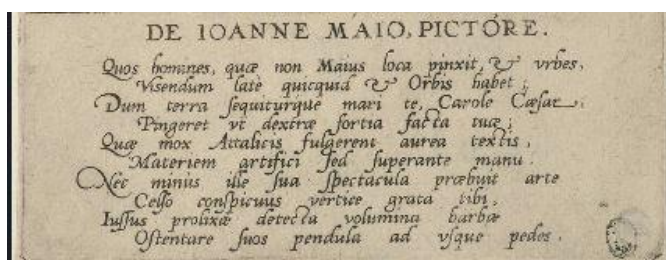 DE IOANNE MAIO, PICTORE.
Quos homines, quæ non Maius loca pinxit, & vrbes,
Visendum latè quicquid & Orbis habet;
Dum terra sequiturque mari te, Carole Cæsar,
Pingeret vt dextræ fortia facta tuæ;
Quæ mox Attalicis fulgerent aurea textis,
Materiem artifici sed superante manu.
Nec minus ille sua spectacula præbuit arte
Celso conspicuus vertice grata tibi,
Iussus prolixæ detecta volumina barbæ
Ostentare suos pendula ad vsque pedes.